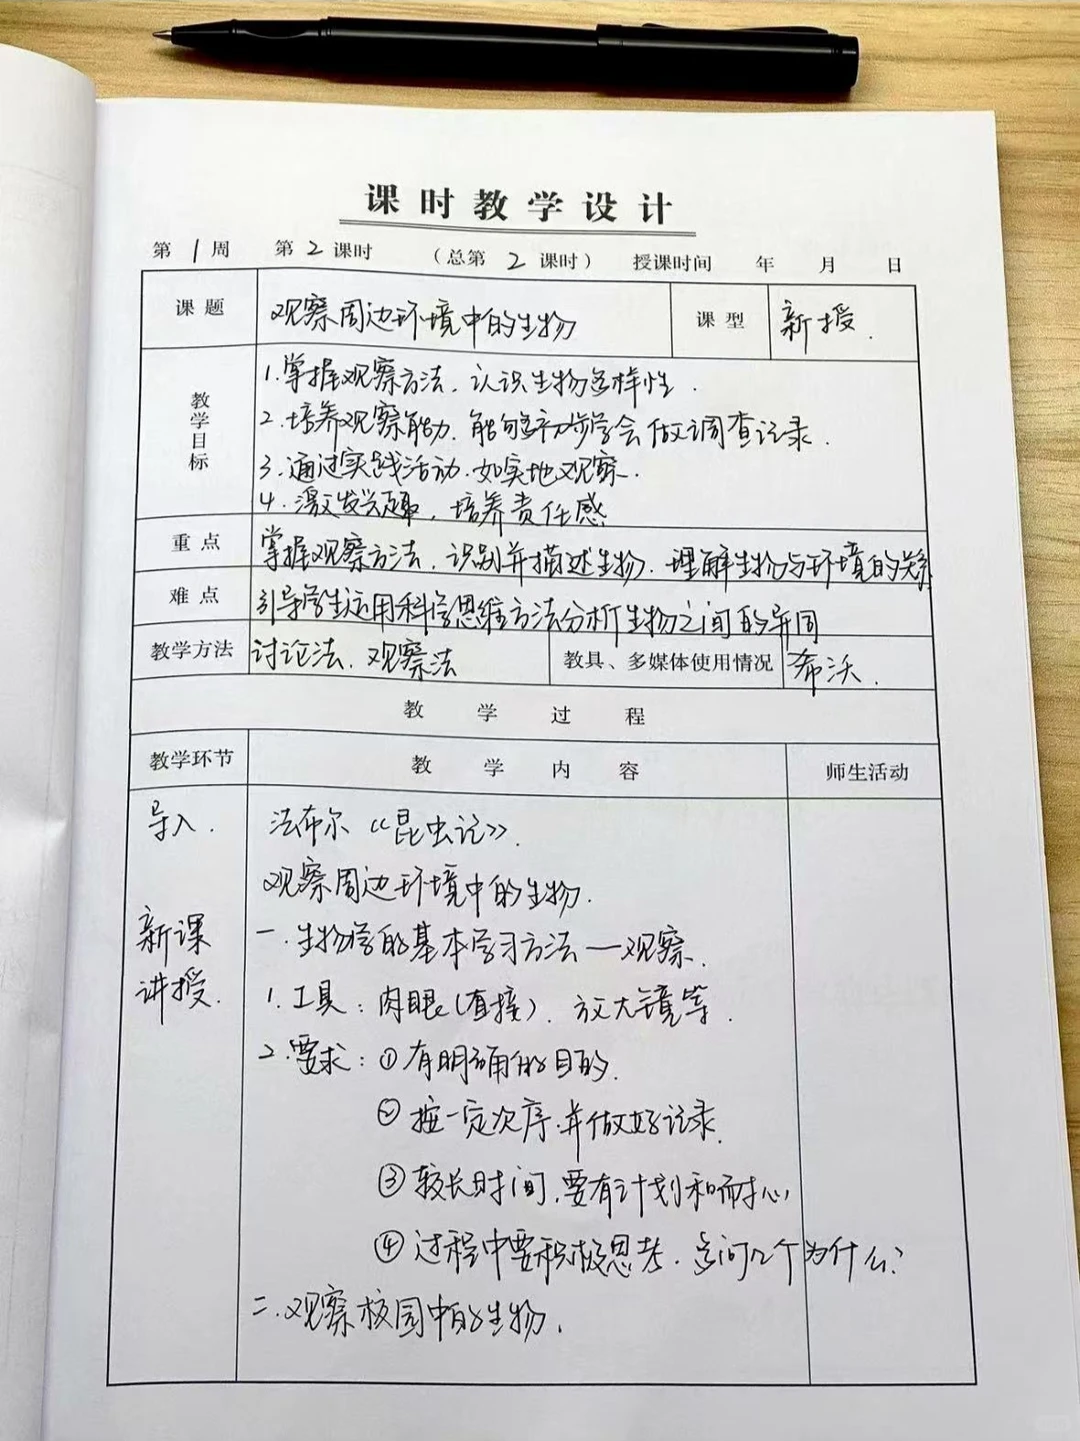 课时教学设计
第 1 周 第 2 课时 (总第 2 课时) 授课时间 年 月 日
课题 观察周边环境中的生物 课型 新授.
教学目标
1.掌握观察方法.认识生物多样性.
2.培养观察能力.能够初步学会做调查记录.
3.通过实践活动.如实地观察.
4.激发兴趣,培养责任感
重点 掌握观察方法.识别并描述生物.理解生物与环境的关系
难点 引导学生运用科学思维方法分析生物之间的异同
教学方法 讨论法.观察法 教具、多媒体使用情况 希沃.
教学过程
教学环节 教学内容 师生活动
导入. 法布尔《昆虫记》.
观察周边环境中的生物.
新课 一.生物学的基本学习方法—观察.
讲授. 1.工具:肉眼(直接).放大镜等.
2.要求:①有明确的目的.
②按一定次序.并做好记录.
③较长时间,要有计划和耐心
④过程中要积极思考.多问几个为什么?
二.观察校园中的生物.